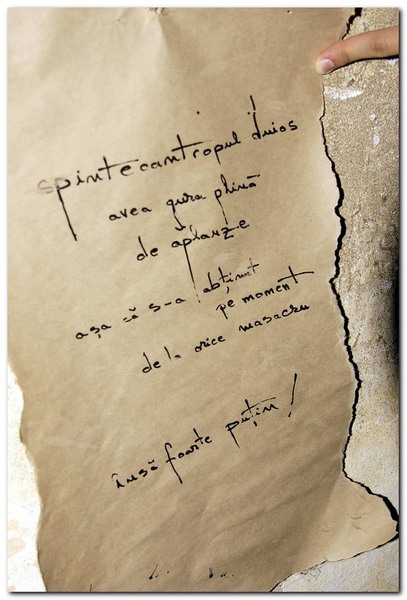 spintecantropul duios
avea gura plină
de ăplauze
așa că s-a abținut
pe moment
de la orice masacru
însă foarte puțin!